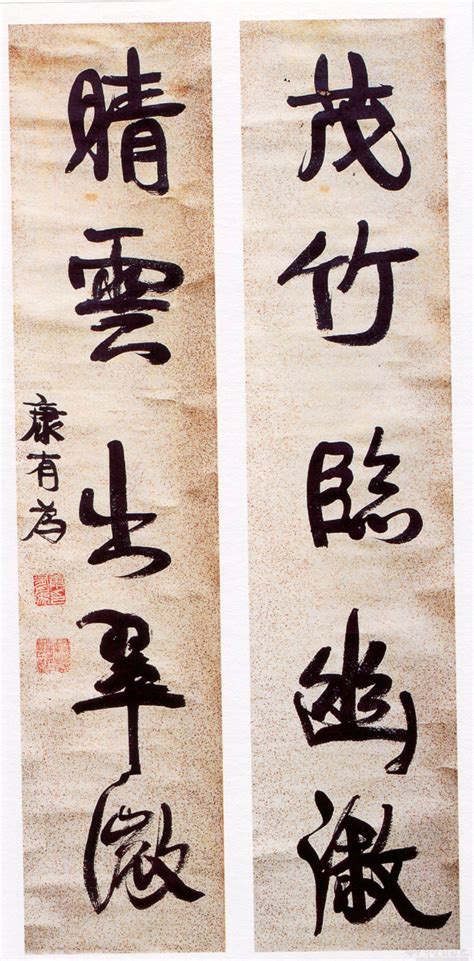 茂竹臨幽漵
晴雲出翠微
康有為